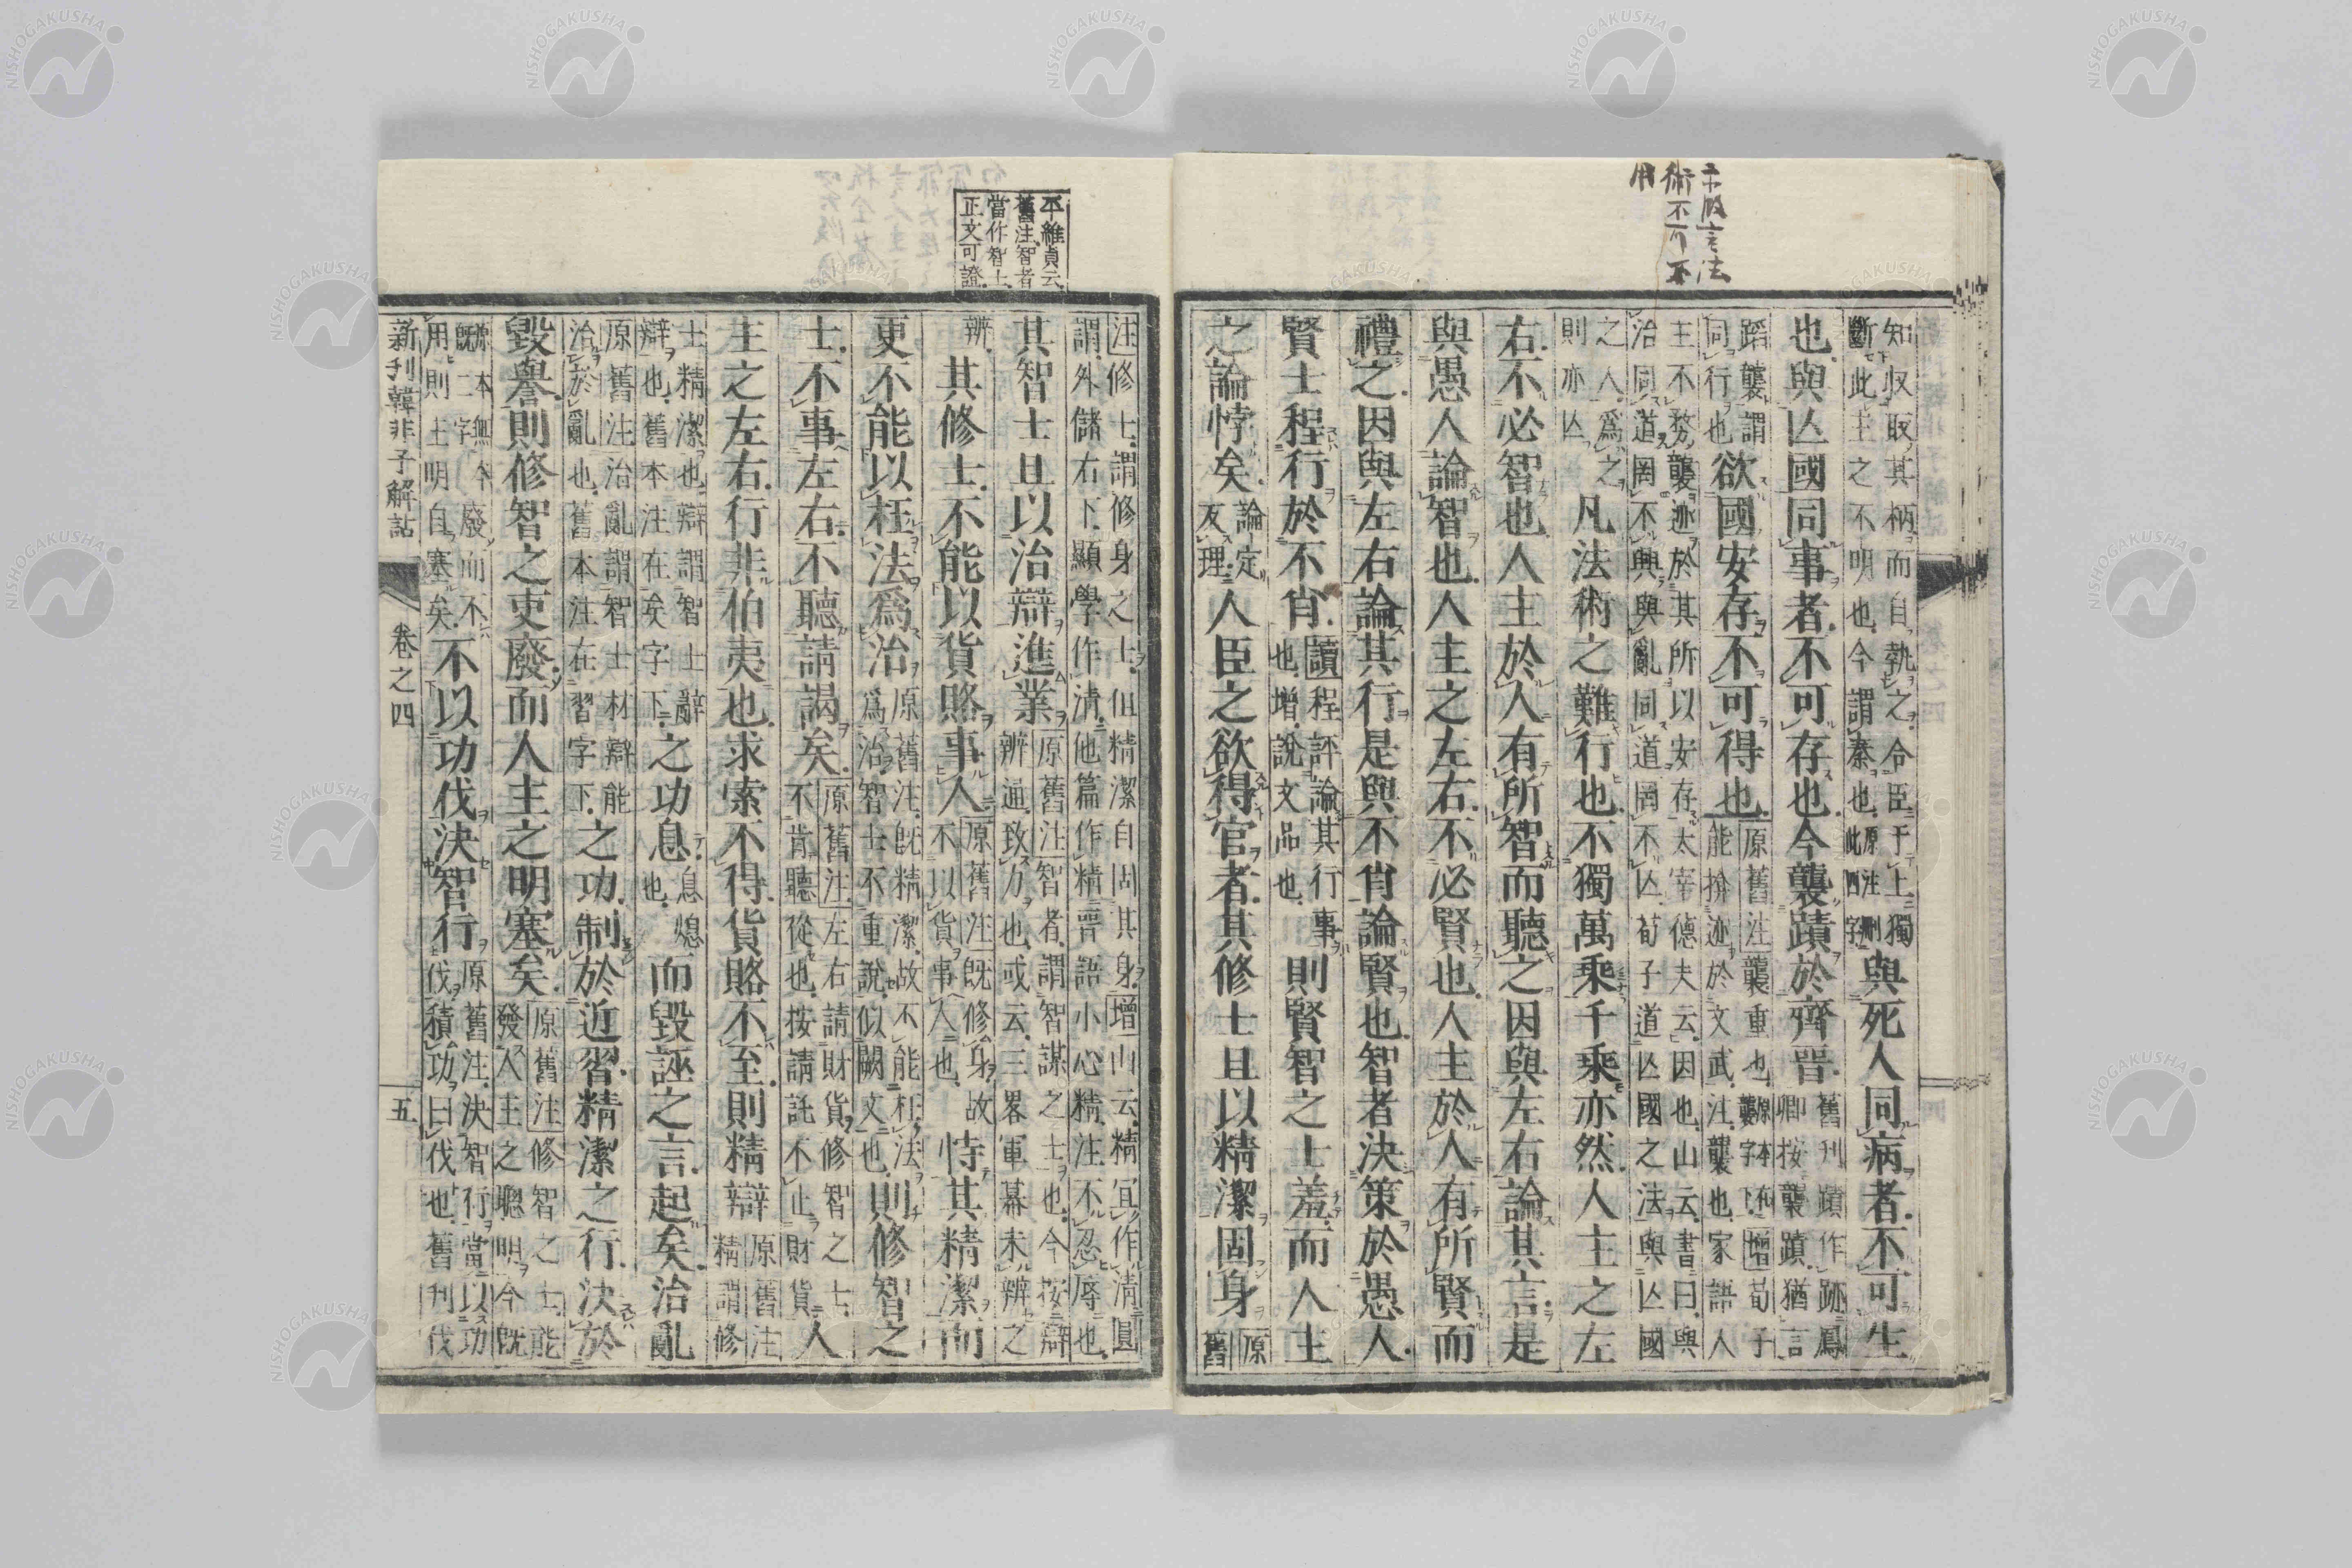 末段言法
術不可不
用
知収取其柄而自執之令臣于上獨
斷此主之不明也今謂秦也原注刪此四字
與死人同病者不可生
也與亾國同事者不可存也今襲蹟於齊晋
舊刊蹟作跡鳳
卿按襲蹟猶言
蹈襲謂
同行也
欲國安存不可得也
原舊注襲重也原本布襲字下增荀子
能揜迹於文武注襲也家語人
主不務襲迹於其所以安存太宰德夫云因也山云書曰與
治同道罔不興與亂同道罔不亾荀子道亾國之法與亾國
之人爲之
則亦亾
凡法術之難行也不獨萬乘千乘亦然人主之左
右不必智也人主於人有所智而聽之因與左右論其言是
與愚人論智也人主之左右不必賢也人主於人有所賢而
禮之因與左右論其行是與不肖論賢也智者決策於愚人
賢士程行於不肖
讀程評論其行事
也增說文品也
則賢智之士羞而人主
之論悖矣
論定
反理
人臣之欲得官者其修士且以精潔固身
原
舊
平維貞云
舊注智者
當作智士
正文可證
注修士謂修身之士但精潔自固其身增山云精宜作清圓
謂外儲右下顯學作清他篇作精晉語小心精注不忍辱也
其智士且以治辯進業
原舊注智者謂智謀之士也今按辯
辨通致力也或云三畧軍幕未辨之
辨
其修士不能以貨賂事人
原舊注既修身故
不以貨事人也
恃其精潔而
更不能以枉法爲治
原舊注既精潔故不能枉法
爲治智士不重說似闕文也
則修智之
士不事左右不聽請謁矣
原舊注左右請財貨修智之士
不肯聽從也按請託不止財貨
人
主之左右行非伯夷也求索不得貨賂不至則精辯
原舊注
精謂修
士精潔也辯謂智士辭
辯也舊本注在矣字下
之功息
息熄
也
而毀誣之言起矣治亂
原舊注治亂謂智士材辯能
治於亂也舊本注在習字下
之功制於近習精潔之行決於
毀譽則修智之吏廢而人主之明塞矣
原舊注修智之士能
發人主之聰明今既
原本無今
既二字
廢而不
用則主明自塞矣
不以功伐決智行
原舊注決智行當以功
伐積功曰伐也舊刊伐
新刊韓非子解詁
卷之四
五